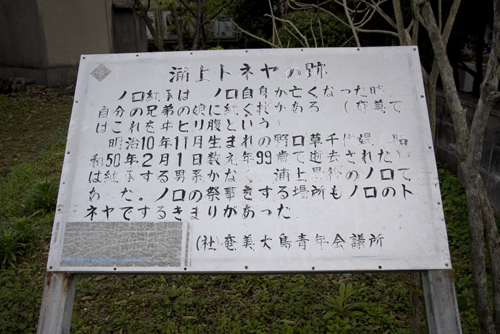 浦上トネヤの跡
ノロ継承は ノロ自身が亡くなった時
自分の兄弟の娘に継ぐ権がある (奄美で
はこれを ヒリ腹という
明治10年11月生まれの野口草千代 昭
和50年2月1日数え年99歳で逝去された
は継承する男系がなく 浦上 のノロで
あった。ノロの祭事をする場所もノロのト
ネヤでするきまりがあった
(社)奄美大島青年会議所